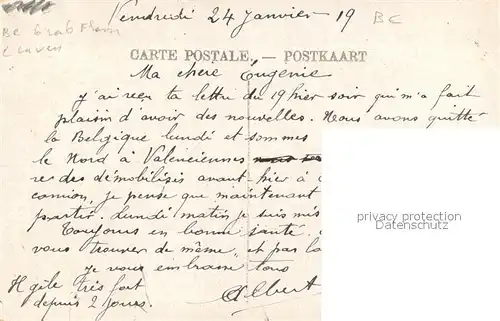 Vendredi 24 Janvier 19
BC
Be Brab Flam
Leuven
CARTE POSTALE. — POSTKAART
Ma chère Eugénie
J'ai reçu ta lettre du 19 hier soir qui m'a fait
plaisir d'avoir des nouvelles. Nous avons quitté
la Belgique lundi et sommes
le Nord à Valenciennes
des démobilisés avant-hier à
camion, je pense que maintenant
partir. Lundi matin je suis
Toujours en bonne santé.
vous trouver de même et par
Je vous embrasse tous
Albert
Il gèle très fort
depuis 2 jours.
privacy protection
Datenschutz